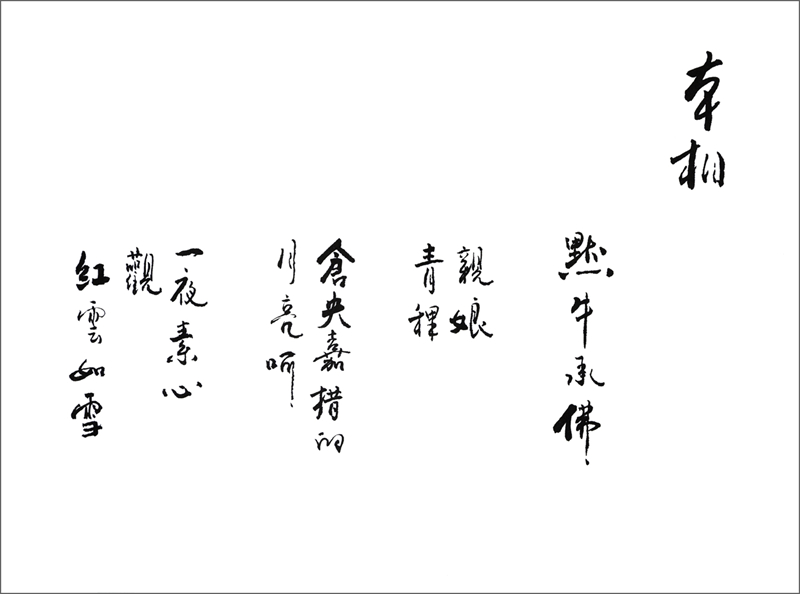 本相
黙牛承佛、
親娘
青稞
倉央嘉措的
月亮啊、
一夜素心
觀
紅雲如雪